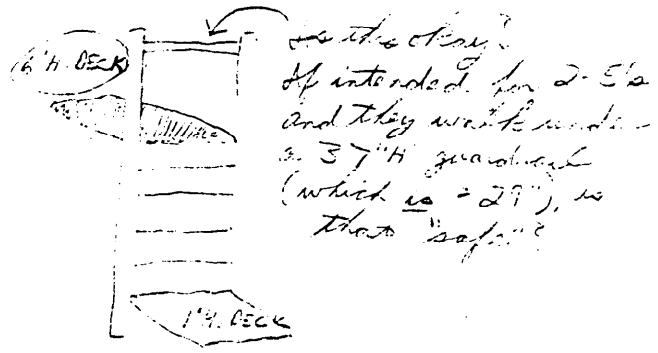 Is this okay?
6'H. DECK
If intended for 2-5's
and they walk under
a 37"H guardrail
(which is = 29"), is
that "safe"?
1'H. DECK